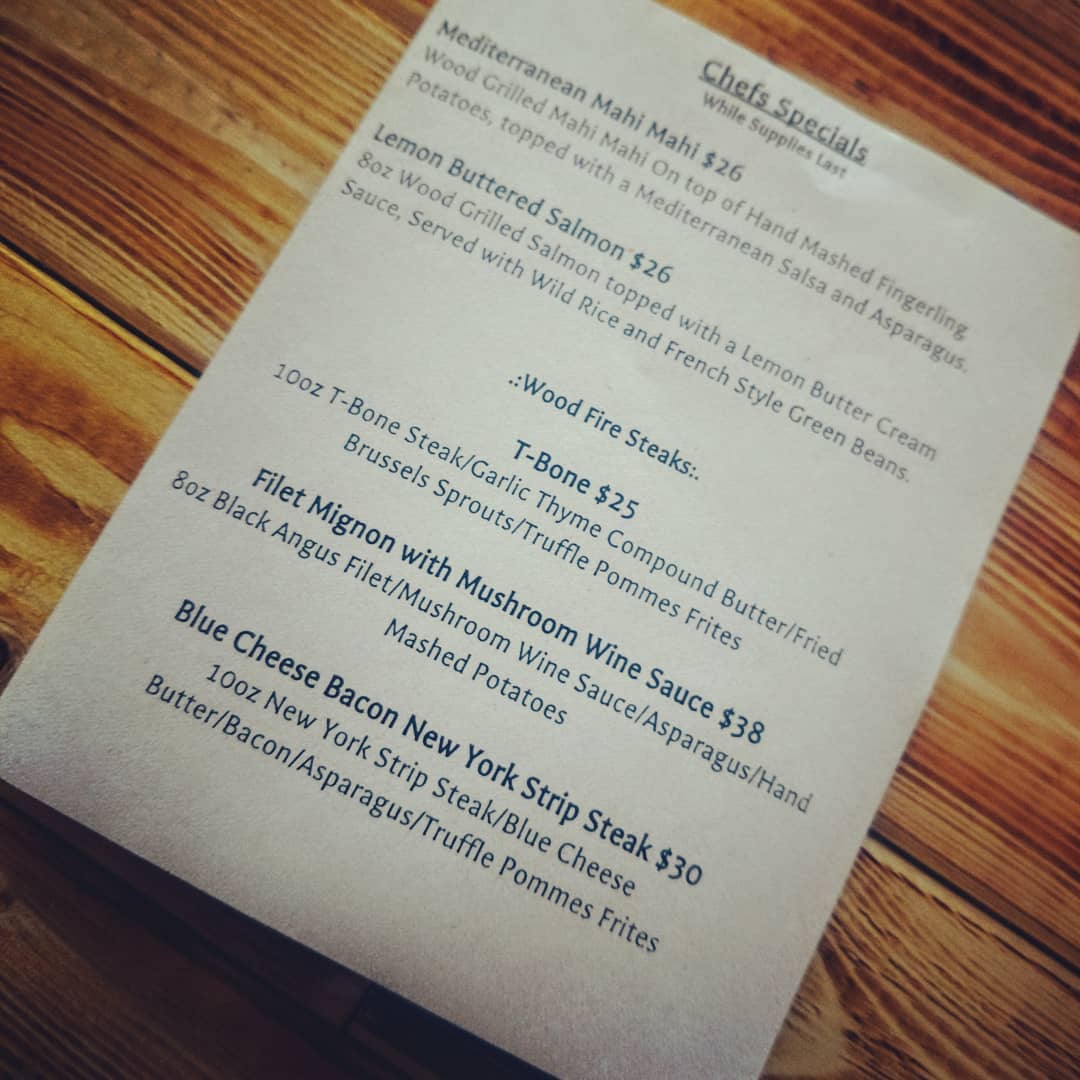 Chefs Specials
While Supplies Last
Mediterranean Mahi Mahi $26
Wood Grilled Mahi Mahi On top of Hand Mashed Fingerling
Potatoes, topped with a Mediterranean Salsa and Asparagus.
Lemon Buttered Salmon $26
8oz Wood Grilled Salmon topped with a Lemon Butter Cream
Sauce, Served with Wild Rice and French Style Green Beans.
.:Wood Fire Steaks:.
T-Bone $25
10oz T-Bone Steak/Garlic Thyme Compound Butter/Fried
Brussels Sprouts/Truffle Pommes Frites
Filet Mignon with Mushroom Wine Sauce $38
8oz Black Angus Filet/Mushroom Wine Sauce/Asparagus/Hand
Mashed Potatoes
Blue Cheese Bacon New York Strip Steak $30
10oz New York Strip Steak/Blue Cheese
Butter/Bacon/Asparagus/Truffle Pommes Frites